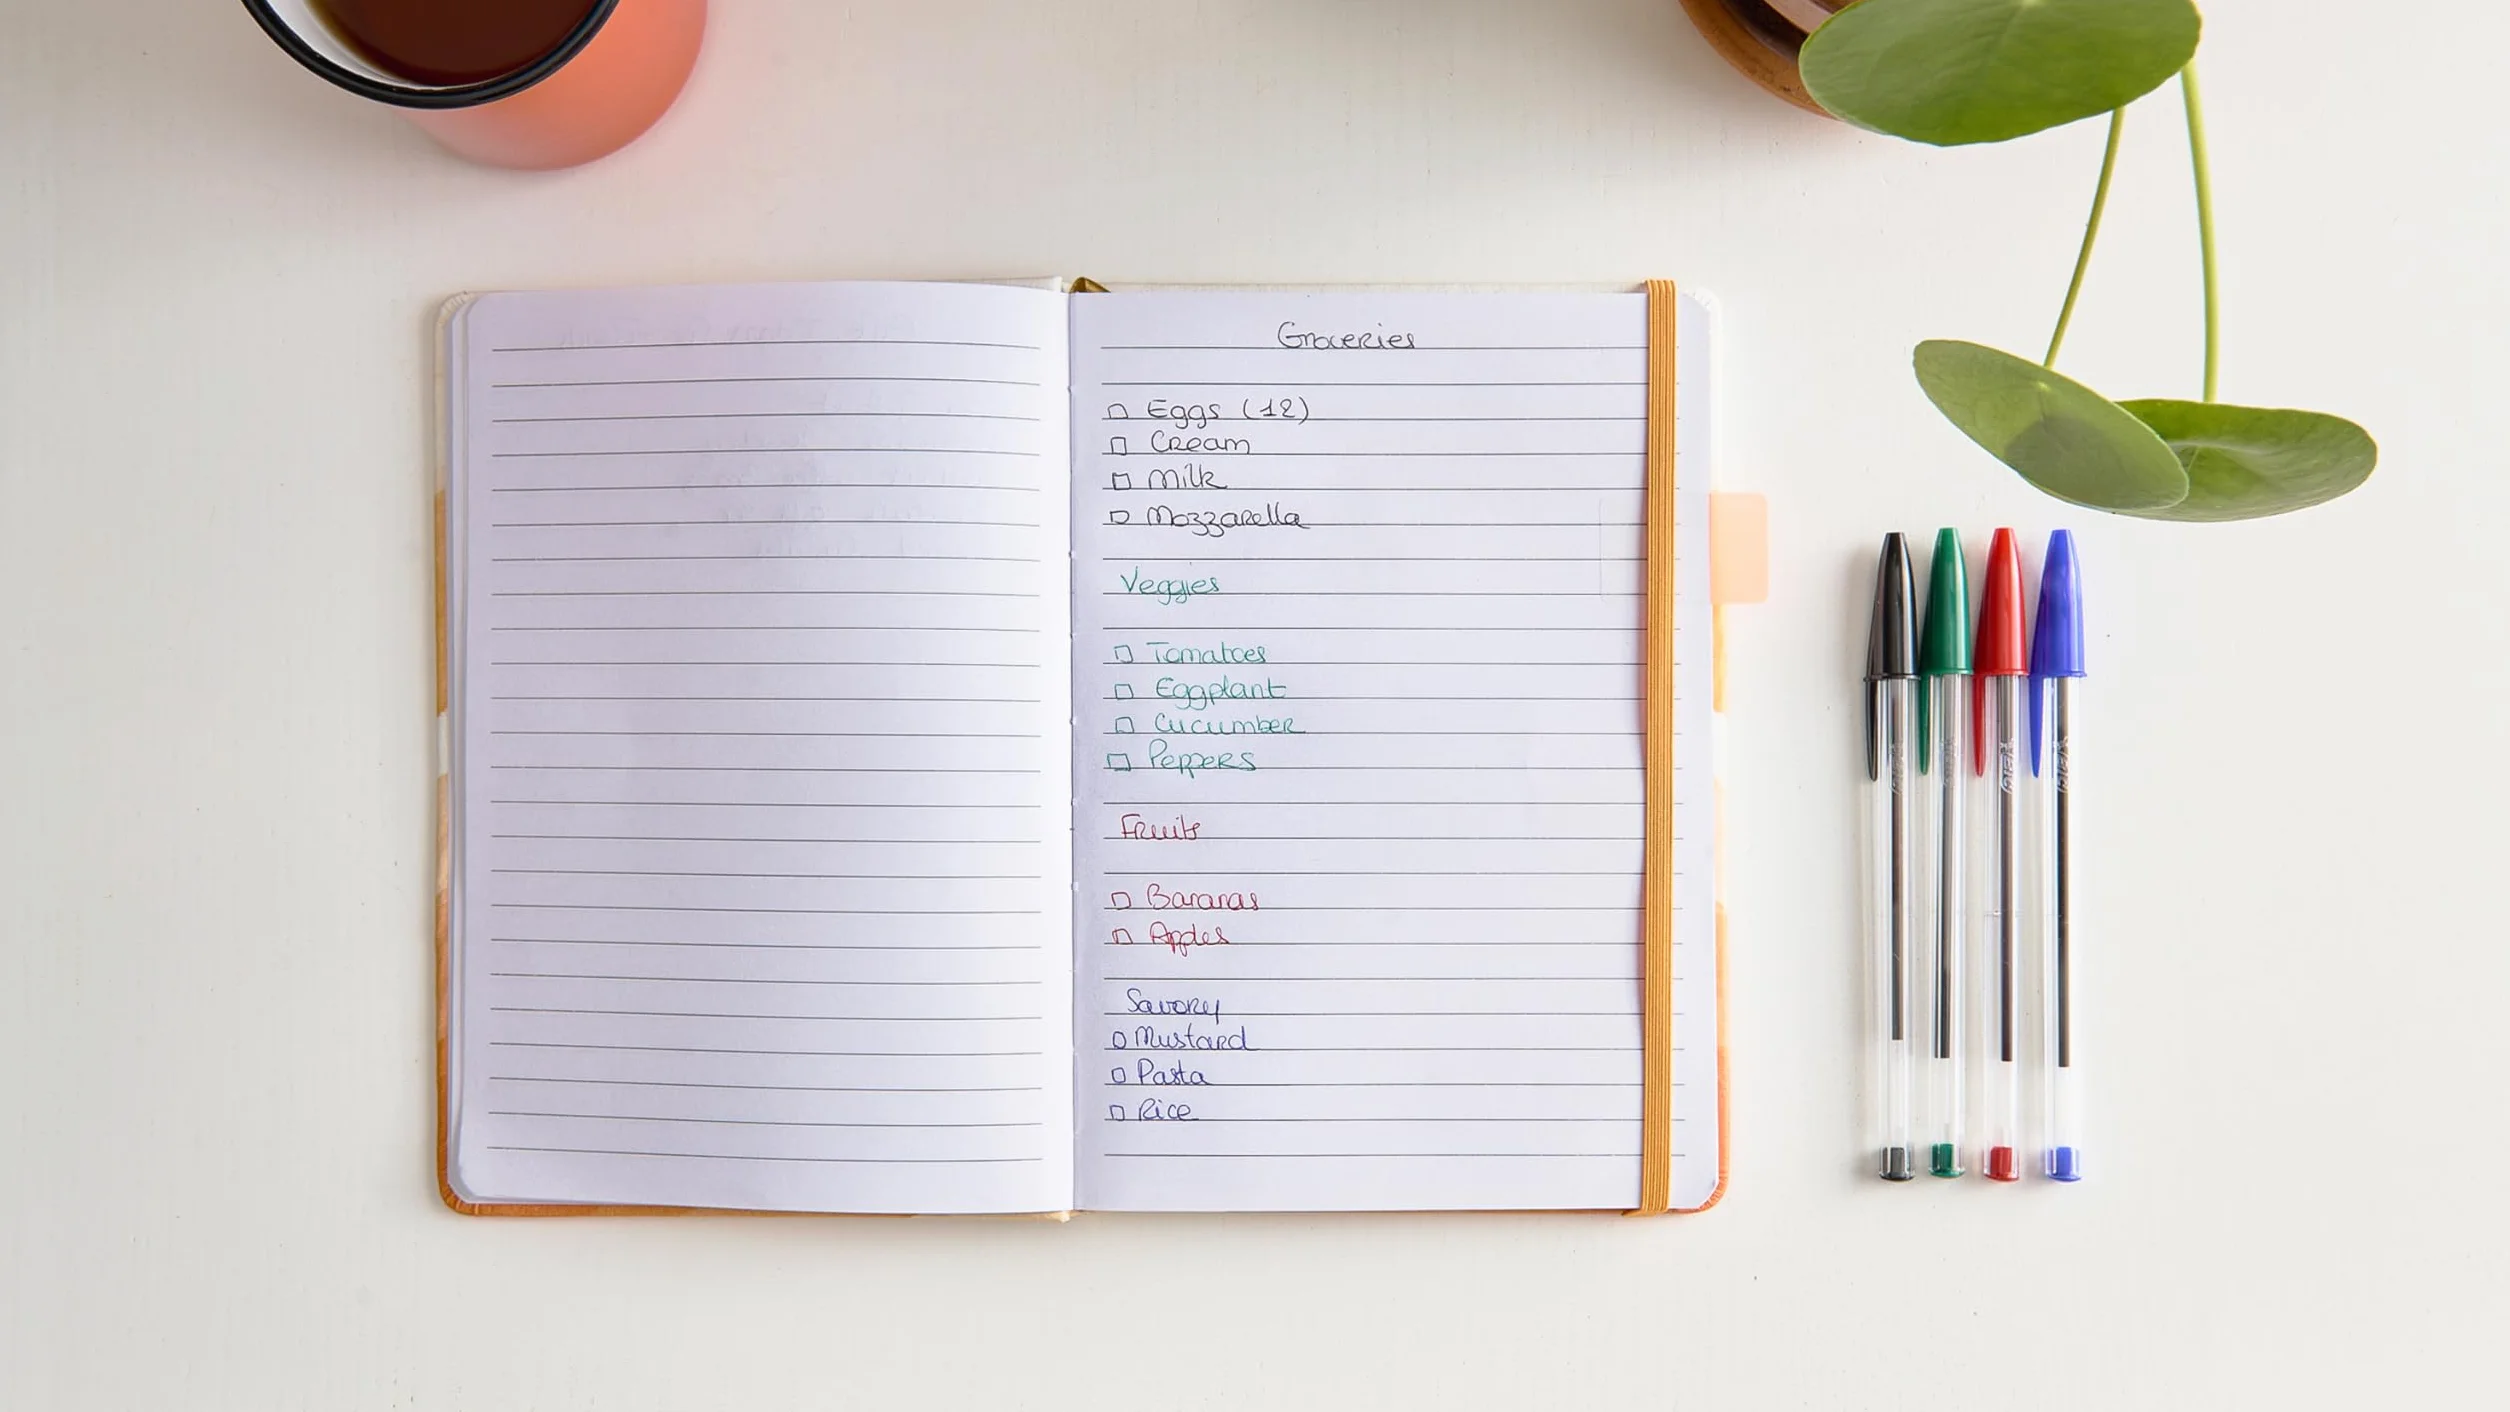 Groceries
Eggs (12)
Cream
Milk
Mozzarella
Veggies
Tomatoes
Eggplant
Cucumber
Peppers
Fruits
Bananas
Apples
Savory
Mustard
Pasta
Rice